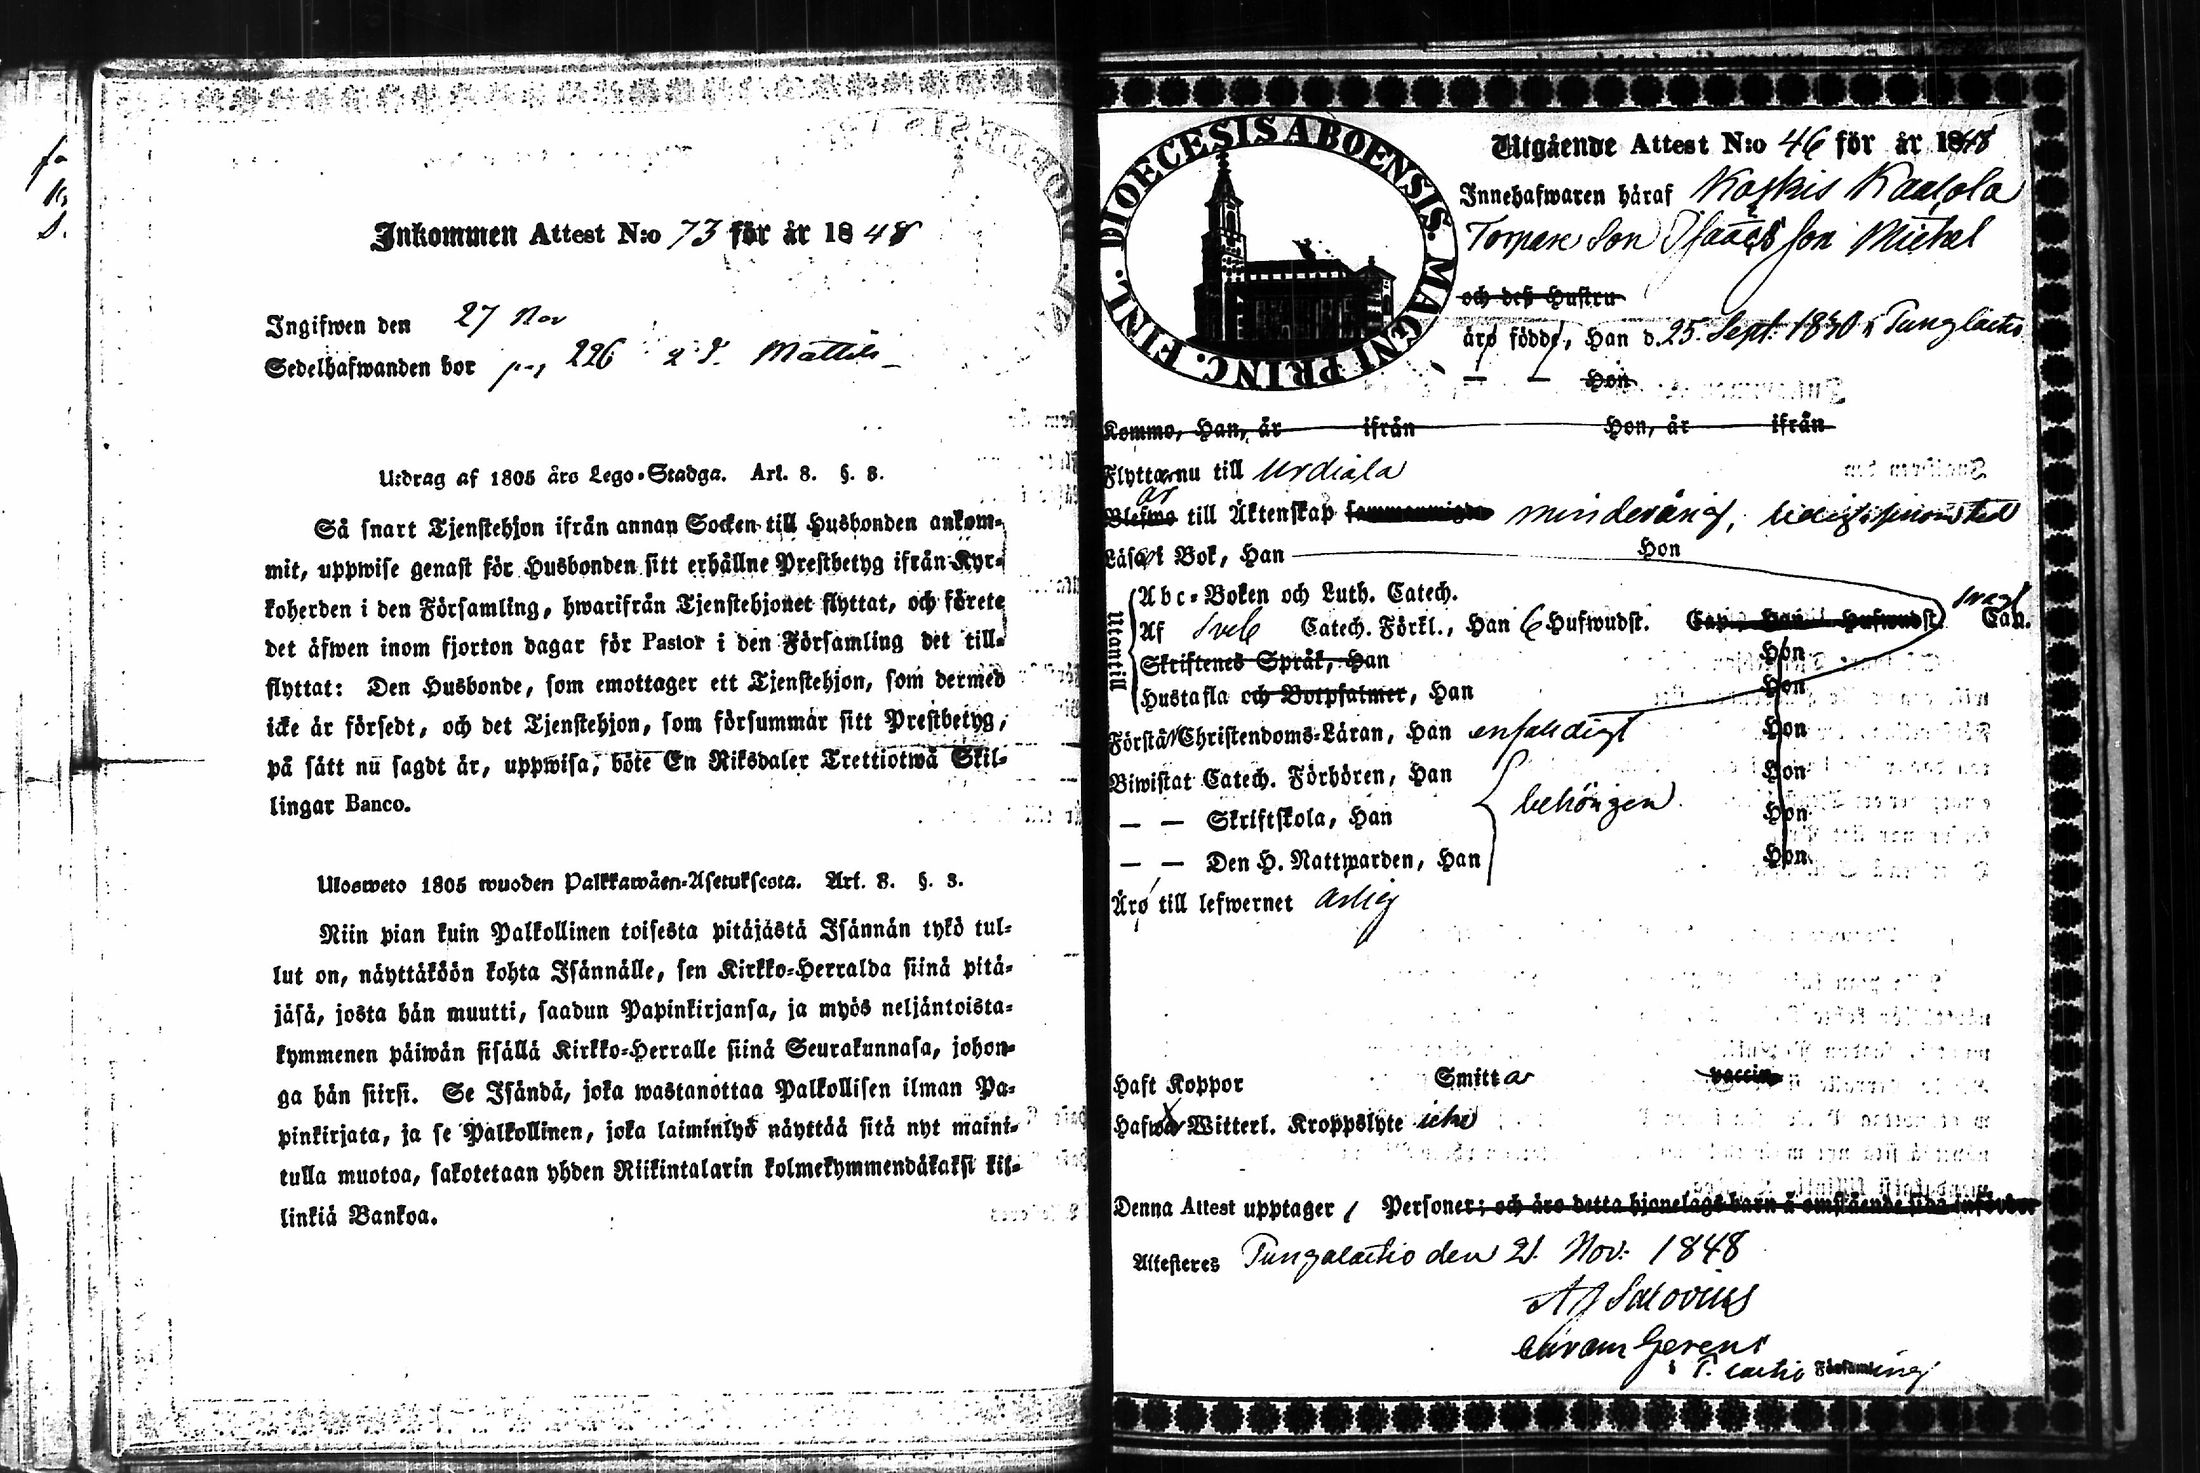 Inkommen Attest N:o 73 för år 1848
Ingifwen den 27 Nov
Sedelhafwanden bor 226 Mattila
Utdrag af 1805 års Lego-Stadga. Art. 8. §. 8.
Så snart Tjenstehjon ifrån annan Socken till Husbonden ankom-
mit, uppwise genast för Husbonden sitt erhållne Prestbetyg ifrån Kyr-
koherden i den Församling, hwarifrån Tjenstehjonet flyttat, och förete
det äfwen inom fjorton dagar för Pastor i den Församling det till-
flyttat: Den Husbonde, som emottager ett Tjenstehjon, som dermed
icke är försedt, och det Tjenstehjon, som försummar sitt Prestbetyg,
på sätt nu sagdt är, uppwisa, böte En Riksdaler Trettiotwå Skil-
lingar Banco.
Ulosweto 1805 wuoden Palkkawäen-Asetuksesta. Art. 8. §. 8.
Niin pian kuin Palkollinen toisesta pitäjästä Isännän tykö tul-
lut on, näyttäköön kohta Isännälle, sen Kirkko-Herralda siinä pitä-
jäsä, josta hän muutti, saadun Papinkirjansa, ja myös neljäntoista-
kymmenen päiwän sisällä Kirkko-Herralle siinä Seurakunnasa, johon-
ga hän siirsi. Se Isändä, joka wastanottaa Palkollisen ilman Pa-
pinkirjata, ja se Palkollinen, joka laiminlyö näyttää sitä nyt maini-
tulla muotoa, sakotetaan yhden Riikintalarin kolmekymmendäkaksi kil-
linkiä Bankoa.
DIOECESIS ABOENSIS. MAGNI PRINC. FINL.
Utgående Attest N:o 46 för år 1848
Innehafwaren häraf Koskis Kaulola
Torpare Son Isaacs son Michel
och deß Hustru
äro födde, Han d. 25 Sept. 1830 i Tunglactio
— — Hon
Komme, Han, år ifrån Hon, år ifrån
Flyttar nu till Urdiala
är till Äktenskap minderårig,
Läser i Bok, Han Hon
Utantill
Abc-Boken och Luth. Catech.
Af Sveb Catech. Förkl., Han 6 Hufwudst. Cap. Han Hufwudst. svagt Cap.
Skriftenes Språk, Han Hon
Hustafla och Botpsalmer, Han Hon
Förstår Christendoms-Läran, Han enfaldigt Hon
Biwistat Catech. Förhören, Han Hon
— — Skriftskola, Han behörigen Hon
— — Den H. Nattwarden, Han Hon
Äro till lefwernet ärlig
Haft Koppor Smittor vaccin
Hafwa Witterl. Kroppslyte icke
Denna Attest upptager 1 Personer; och äro detta hjonelags barn å omstående sida införde
Attesteres Tungalactio den 21 Nov. 1848
Curam Gerens
i T. Lactio Församling